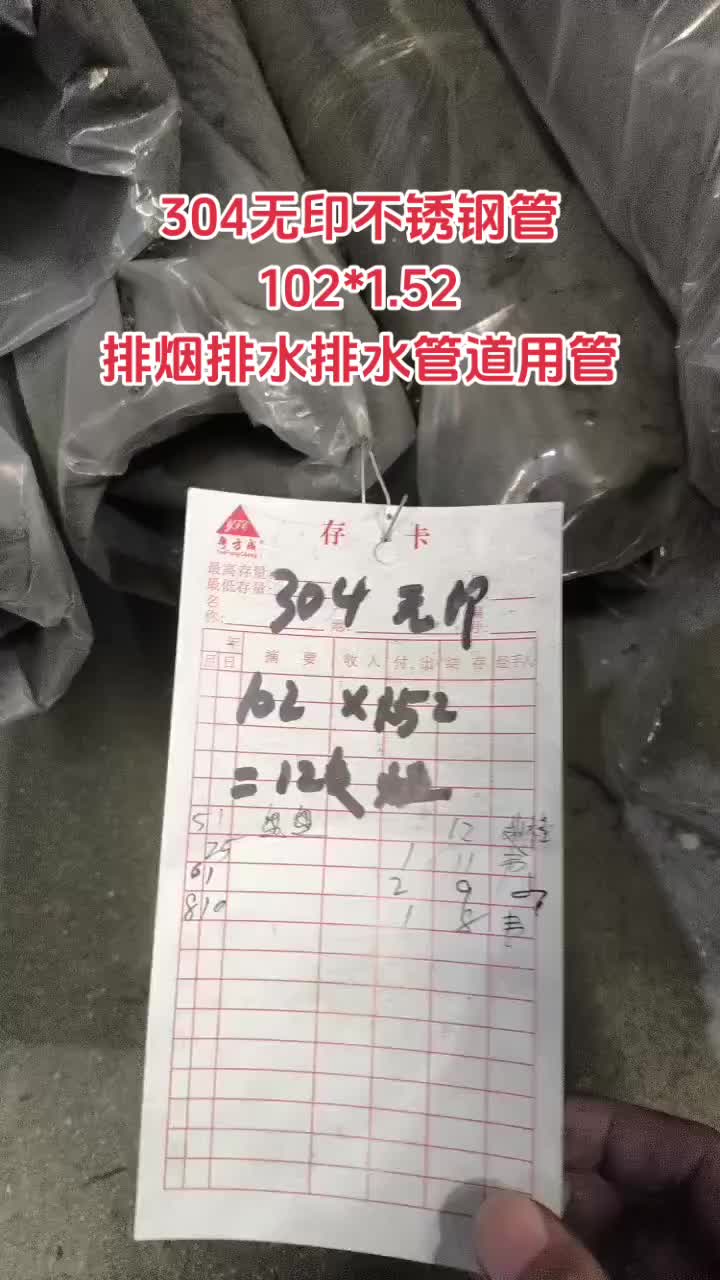 304无印不锈钢管
102*1.52
排烟排水排水管道用管
粤方成
存 卡
最高存量:
最低存量:
名
304 无印
年
月 日 摘 要 收入 付出 结存 经手人
102 × 152
= 12支
5 1 12
25 1 11
6 1 2 9
8 10 1 8